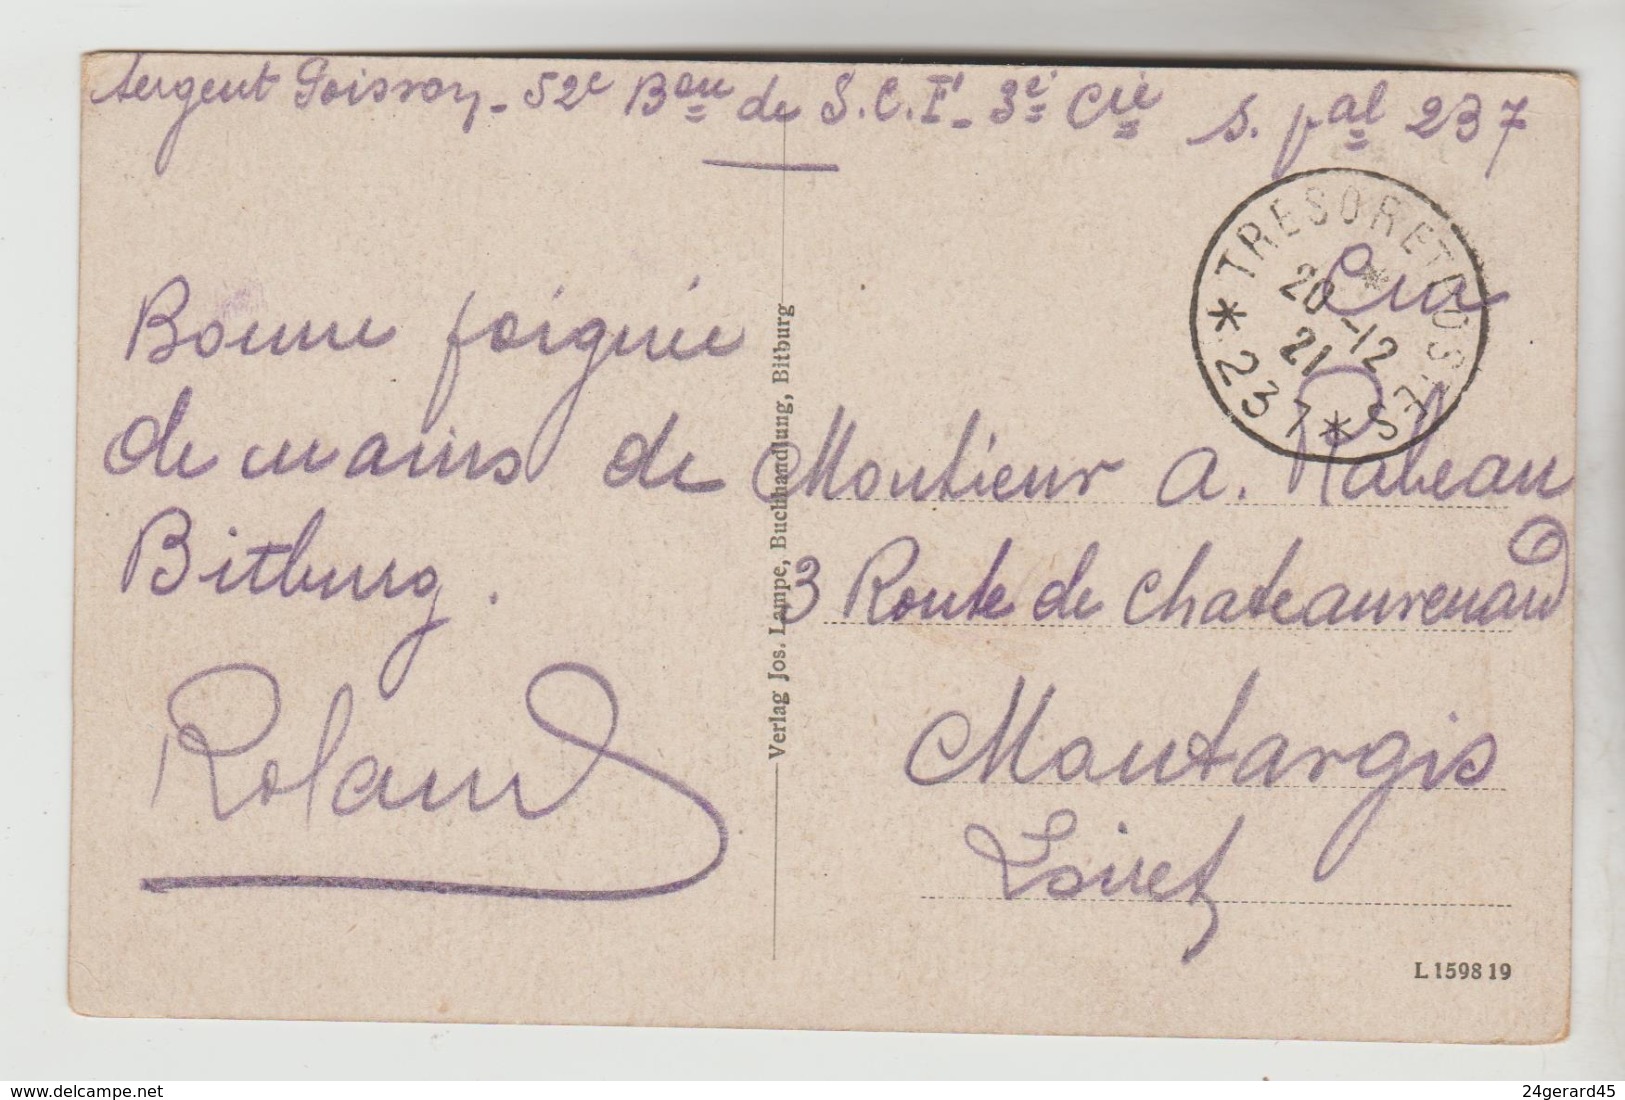 Sergent Poisson - 52e Bon de S.C.F. 3e Cie S. pal 237
TRESOR ET POSTES
* 237 *
20 -12
21
Bonne poignée
de mains de
Bitburg.
Roland
Verlag Jos. Lampe, Buchhandlung, Bitburg
Monsieur A. Rabeau
3 Route de Chateaurenard
Montargis
Loiret
L 1598 19
24gerard45
www.delcampe.net